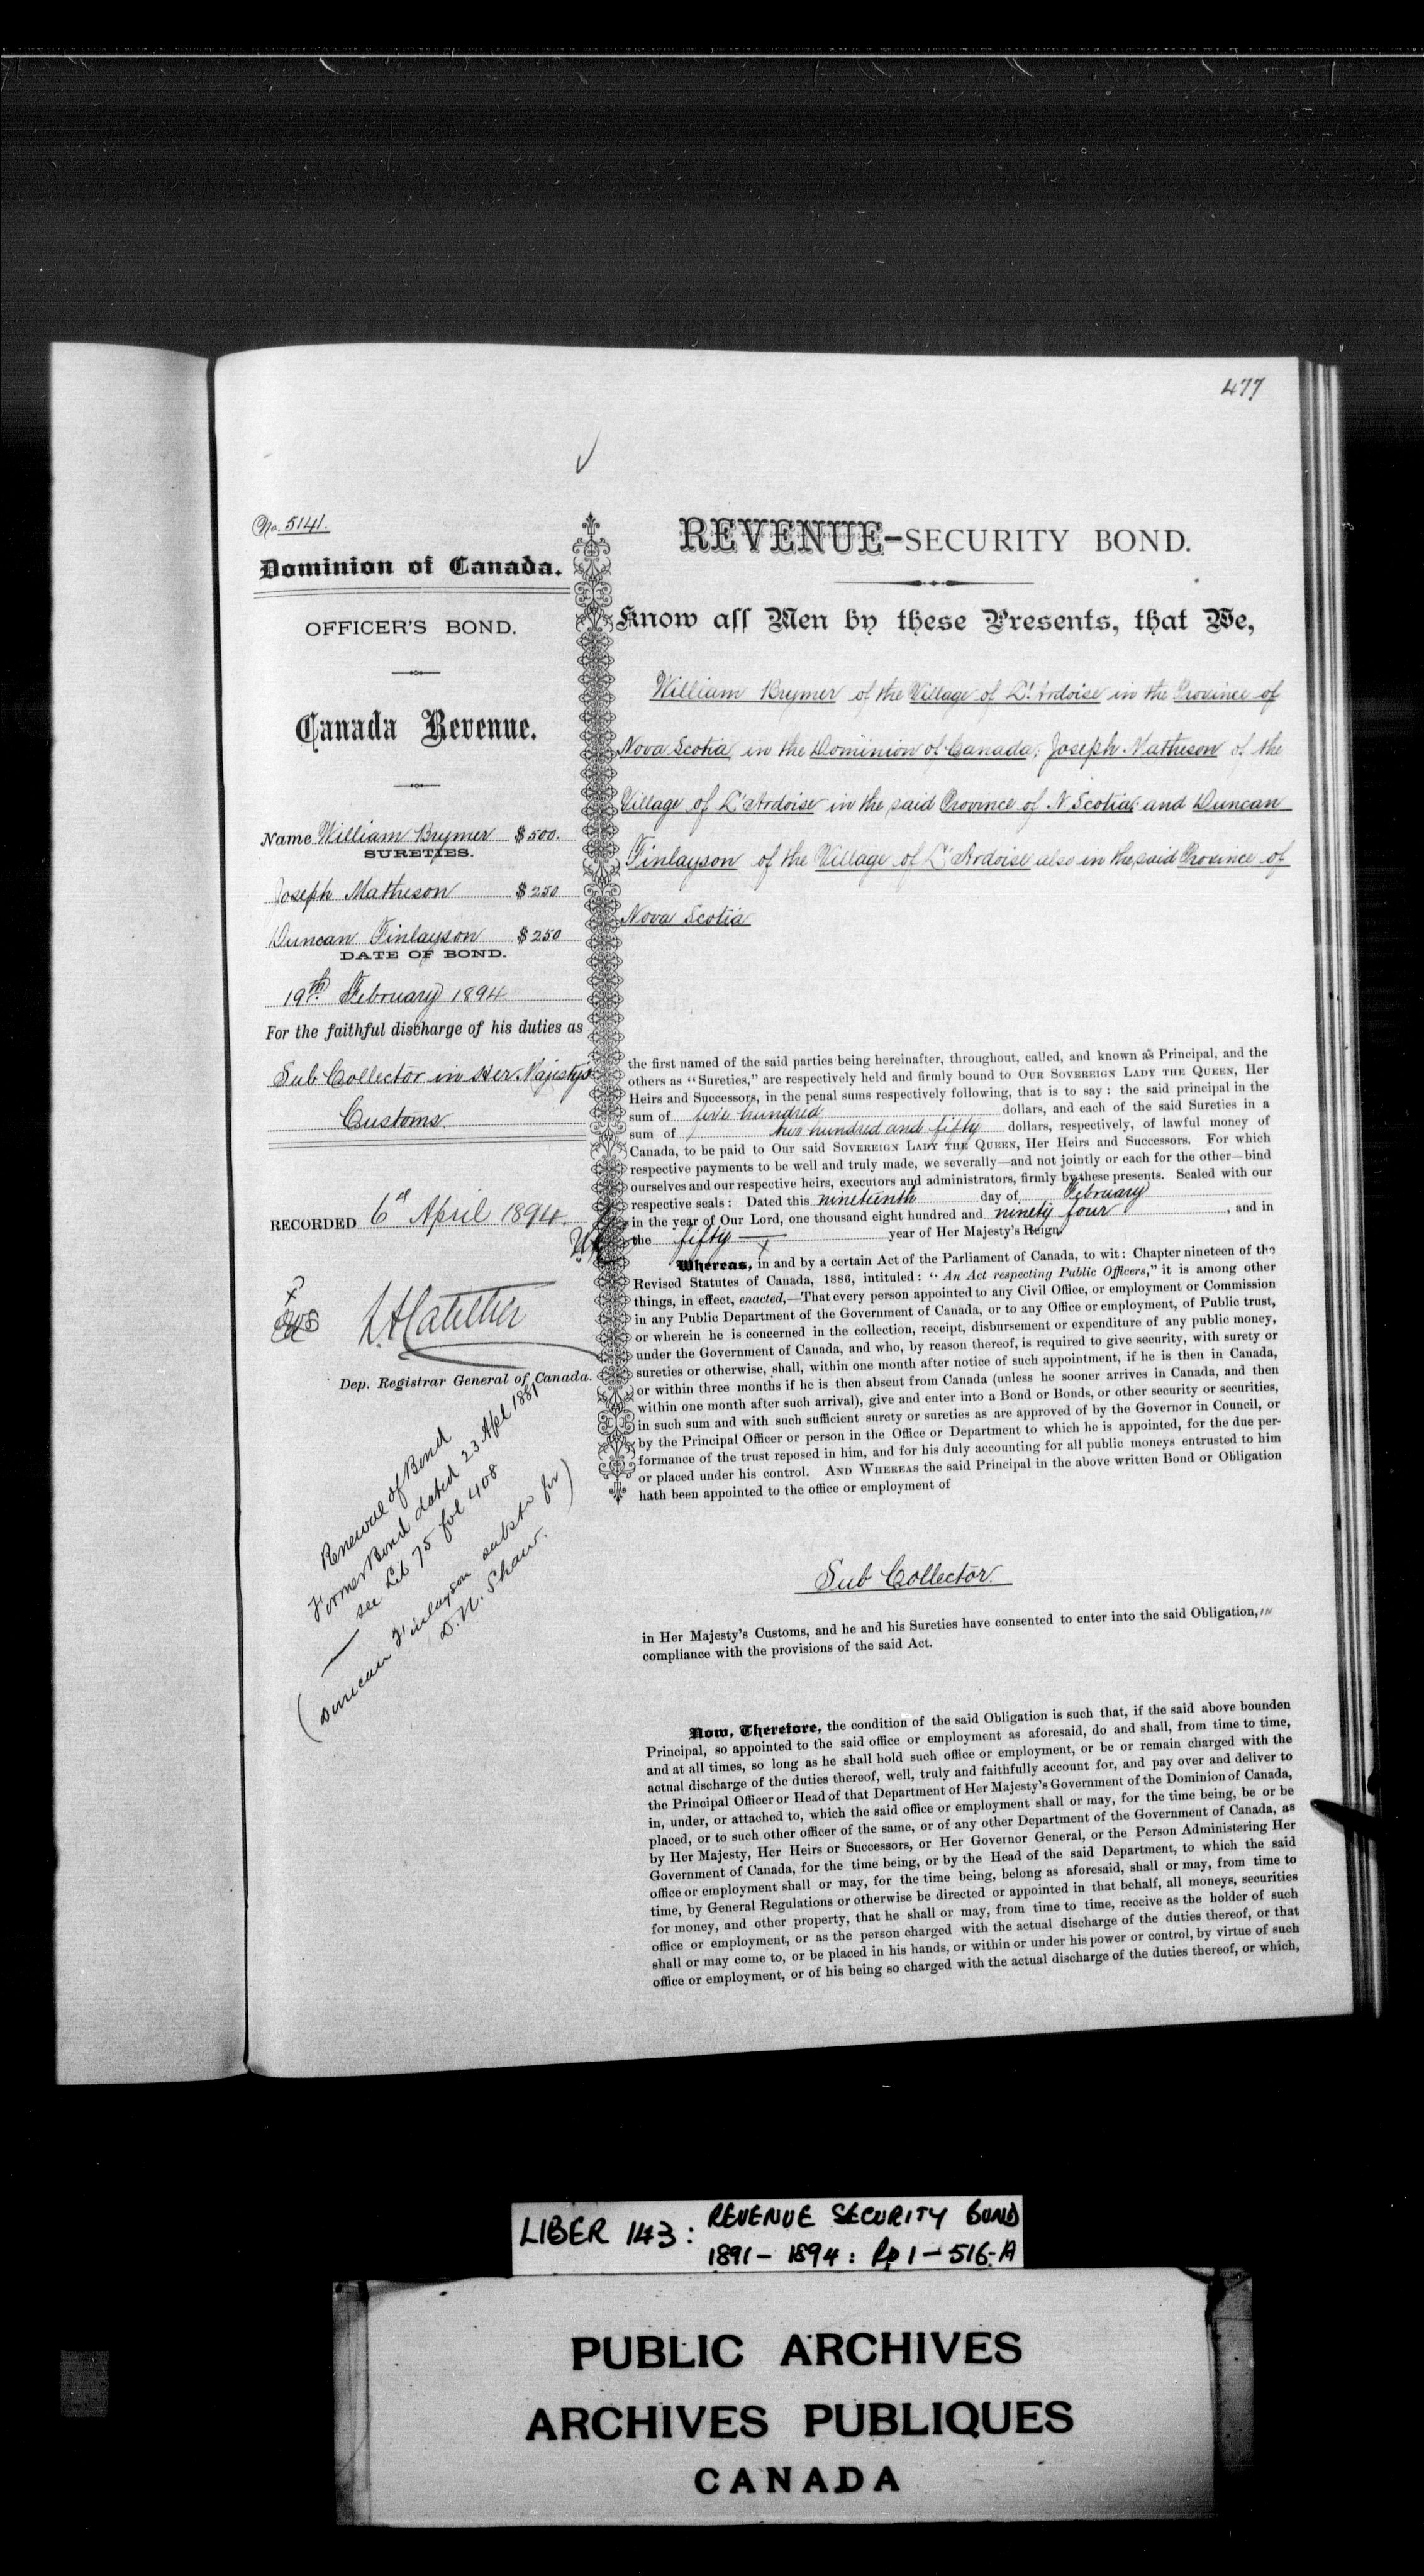 477
No. 5141.
Dominion of Canada.
OFFICER'S BOND.
Canada Revenue.
Name William Brymer $500.
SURETIES.
Joseph Matheson $250
Duncan Finlayson $250
DATE OF BOND.
19th February 1894
For the faithful discharge of his duties as
Sub Collector in Her Majesty's
Customs
RECORDED 6th April 1894.
Dep. Registrar General of Canada.
Renewal of Bond
Former Bond dated 23 Apl 1881
see Lib 75 fol 408
(Duncan Finlayson substd for)
D. N. Shaw.
REVENUE-SECURITY BOND.
Know all Men by these Presents, that We,
William Brymer of the Village of L'Ardoise in the Province of
Nova Scotia in the Dominion of Canada; Joseph Matheson of the
Village of L'Ardoise in the said Province of N. Scotia and Duncan
Finlayson of the Village of L'Ardoise also in the said Province of
Nova Scotia
the first named of the said parties being hereinafter, throughout, called, and known as Principal, and the
others as "Sureties," are respectively held and firmly bound to OUR SOVEREIGN LADY THE QUEEN, Her
Heirs and Successors, in the penal sums respectively following, that is to say: the said principal in the
sum of five hundred dollars, and each of the said Sureties in a
sum of two hundred and fifty dollars, respectively, of lawful money of
Canada, to be paid to Our said SOVEREIGN LADY THE QUEEN, Her Heirs and Successors. For which
respective payments to be well and truly made, we severally—and not jointly or each for the other—bind
ourselves and our respective heirs, executors and administrators, firmly by these presents. Sealed with our
respective seals: Dated this nineteenth day of February
in the year of Our Lord, one thousand eight hundred and ninety four, and in
the fifty — year of Her Majesty's Reign.
Whereas, in and by a certain Act of the Parliament of Canada, to wit: Chapter nineteen of the
Revised Statutes of Canada, 1886, intituled: "An Act respecting Public Officers," it is among other
things, in effect, enacted,—That every person appointed to any Civil Office, or employment or Commission
in any Public Department of the Government of Canada, or to any Office or employment, of Public trust,
or wherein he is concerned in the collection, receipt, disbursement or expenditure of any public money,
under the Government of Canada, and who, by reason thereof, is required to give security, with surety or
sureties or otherwise, shall, within one month after notice of such appointment, if he is then in Canada,
or within three months if he is then absent from Canada (unless he sooner arrives in Canada, and then
within one month after such arrival), give and enter into a Bond or Bonds, or other security or securities,
in such sum and with such sufficient surety or sureties as are approved of by the Governor in Council, or
by the Principal Officer or person in the Office or Department to which he is appointed, for the due per-
formance of the trust reposed in him, and for his duly accounting for all public moneys entrusted to him
or placed under his control. AND WHEREAS the said Principal in the above written Bond or Obligation
hath been appointed to the office or employment of
Sub Collector.
in Her Majesty's Customs, and he and his Sureties have consented to enter into the said Obligation, in
compliance with the provisions of the said Act.
Now, Therefore, the condition of the said Obligation is such that, if the said above bounden
Principal, so appointed to the said office or employment as aforesaid, do and shall, from time to time,
and at all times, so long as he shall hold such office or employment, or be or remain charged with the
actual discharge of the duties thereof, well, truly and faithfully account for, and pay over and deliver to
the Principal Officer or Head of that Department of Her Majesty's Government of the Dominion of Canada,
in, under, or attached to, which the said office or employment shall or may, for the time being, be or be
placed, or to such other officer of the same, or of any other Department of the Government of Canada, as
by Her Majesty, Her Heirs or Successors, or Her Governor General, or the Person Administering Her
Government of Canada, for the time being, or by the Head of the said Department, to which the said
office or employment shall or may, for the time being, belong as aforesaid, shall or may, from time to
time, by General Regulations or otherwise be directed or appointed in that behalf, all moneys, securities
for money, and other property, that he shall or may, from time to time, receive as the holder of such
office or employment, or as the person charged with the actual discharge of the duties thereof, or that
shall or may come to, or be placed in his hands, or within or under his power or control, by virtue of such
office or employment, or of his being so charged with the actual discharge of the duties thereof, or which,
LIBER 143: REVENUE SECURITY BOND
1891-1894: Pp 1-516-A
PUBLIC ARCHIVES
ARCHIVES PUBLIQUES
CANADA